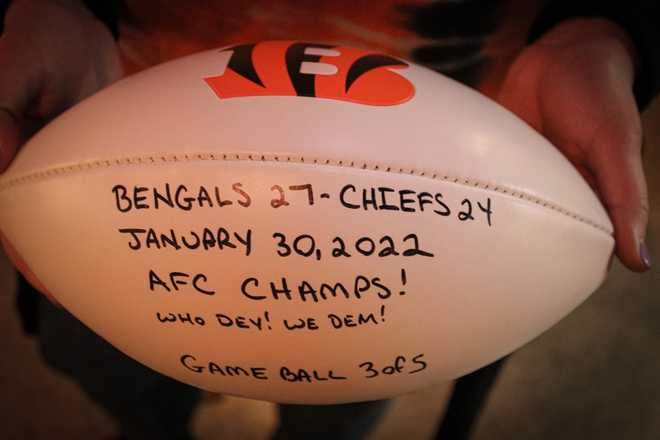 BENGALS 27 - CHIEFS 24
JANUARY 30, 2022
AFC CHAMPS!
WHO DEY! WE DEM!
GAME BALL 3 of 5